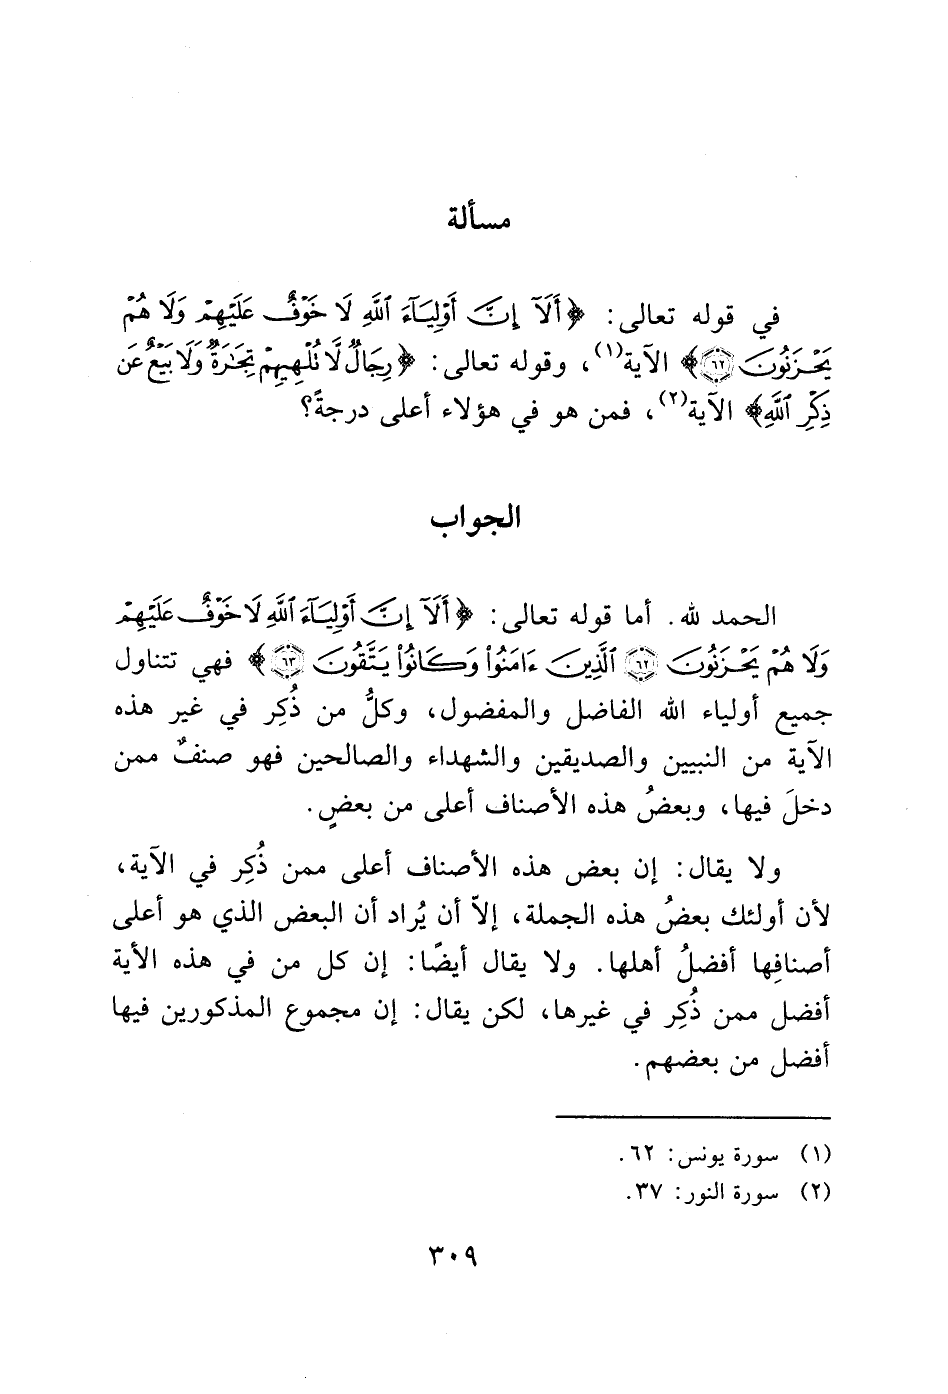 مسألة
في قوله تعالى: ﴿أَلَآ إِنَّ أَوْلِيَآءَ ٱللَّهِ لَا خَوْفٌ عَلَيْهِمْ وَلَا هُمْ
يَحْزَنُونَ ۝٦٢﴾ الآية(١)، وقوله تعالى: ﴿رِجَالٌ لَّا تُلْهِيهِمْ تِجَٰرَةٌ وَلَا بَيْعٌ عَن
ذِكْرِ ٱللَّهِ﴾ الآية(٢)، فمن هو في هؤلاء أعلى درجةً؟
الجواب
الحمد لله. أما قوله تعالى: ﴿أَلَآ إِنَّ أَوْلِيَآءَ ٱللَّهِ لَا خَوْفٌ عَلَيْهِمْ
وَلَا هُمْ يَحْزَنُونَ ۝٦٢ ٱلَّذِينَ ءَامَنُوا۟ وَكَانُوا۟ يَتَّقُونَ ۝٦٣﴾ فهي تتناول
جميع أولياء الله الفاضل والمفضول، وكلُّ من ذُكِر في غير هذه
الآية من النبيين والصديقين والشهداء والصالحين فهو صنفٌ ممن
دخلَ فيها، وبعضُ هذه الأصناف أعلى من بعضٍ.
ولا يقال: إن بعض هذه الأصناف أعلى ممن ذُكِر في الآية،
لأن أولئك بعضُ هذه الجملة، إلاّ أن يُراد أن البعض الذي هو أعلى
أصنافِها أفضلُ أهلها. ولا يقال أيضًا: إن كل من في هذه الأية
أفضل ممن ذُكِر في غيرها، لكن يقال: إن مجموع المذكورين فيها
أفضل من بعضهم.
(١) سورة يونس: ٦٢.
(٢) سورة النور: ٣٧.
٣٠٩